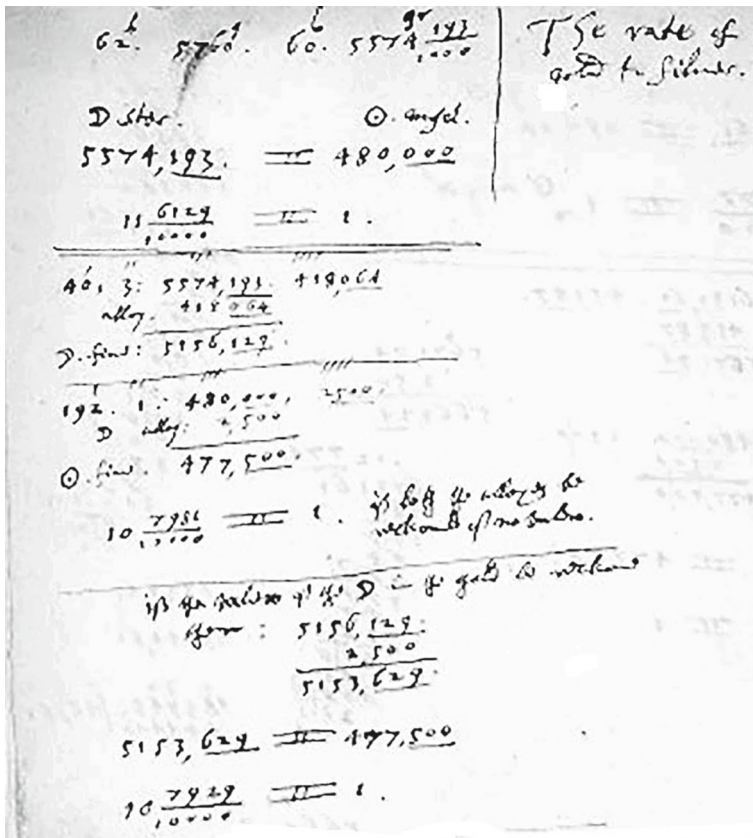 62. 5760. 60. 5574 193/1000
The rate of
gold to silver.
☽ ster. ☉. angel.
5574,193. = 480,000
11 6129/10000 = 1.
40, 3: 5574,193. 418,064
alloy. 418 064
☽. fine: 5156,129.
192. 1: 480,000, 2500,
☽ alloy: 2,500
☉. fine. 477,500
10 7981/10000 = 1. if both the alloyes be
reckoned of no
if the of the ☽ in the gold be reckoned
then: 5156,129.
2,500
5153,629.
5153,629 = 477,500
10 7929/10000 = 1.